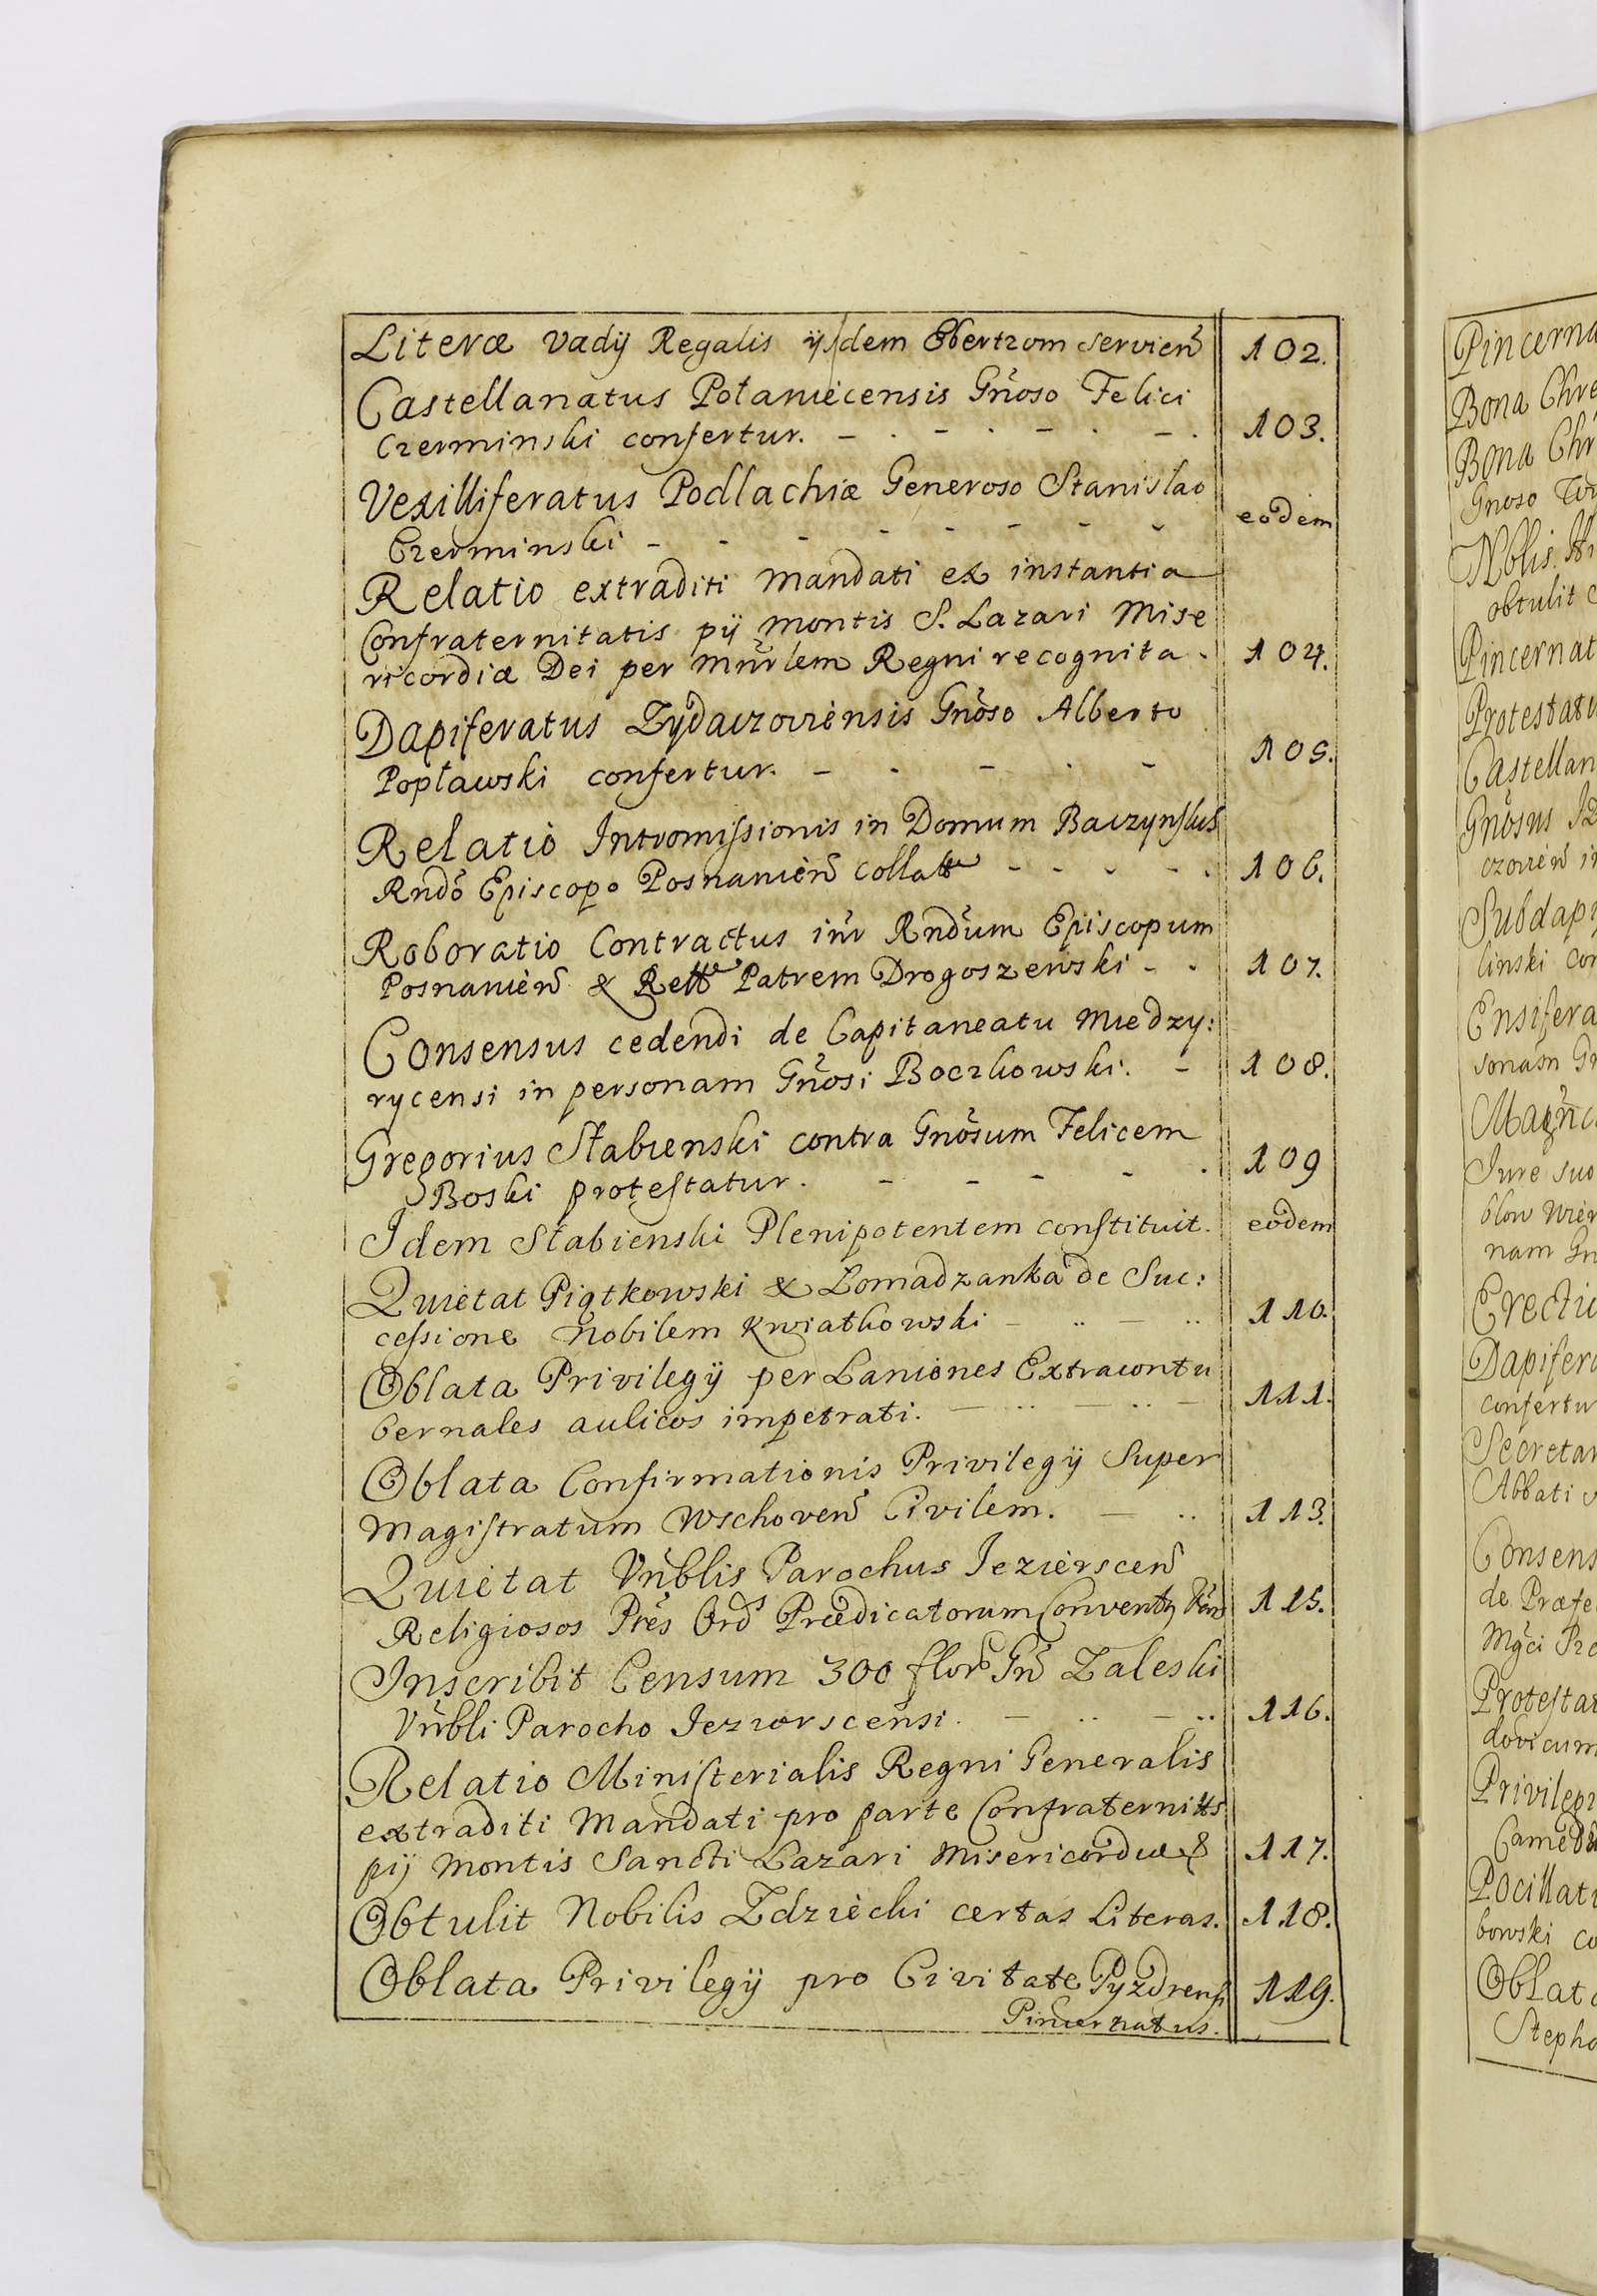 Literæ vadij Regalis ijsdem Ebertzom servien̄ 102.
Castellanatus Połaniecensis Gnōso Felici
Czerminski confertur. - . - . - . - . 103.
Vexilliferatus Podlachiæ Generoso Stanislao
Czerminski - - - - - - - - eodem
Relatio extraditi mandati ex instantia
Confraternitatis pij montis S. Lazari Mise
ricordiæ Dei per mnr̄lem Regni recognita . 104.
Dapiferatus Zydaczoviensis Gnōso Alberto
Popławski confertur. - . - . - 105.
Relatio Intromissionis in Domum Baczynskus
Rndō Episcopo Posnanien̄ collatæ - - - - . 106.
Roboratio Contractus inr̄ Rndūm Episcopum
Posnanien̄ & Rel̄ Patrem Drogoszewski - . 107.
Consensus cedendi de Capitaneatu Miedzy:
rycensi in personam Gnōsi Boczkowski. - 108.
Gregorius Słabienski contra Gnōsum Felicem
Boski protestatur. - - - - . 109
Idem Słabienski Plenipotentem constituit. eodem
Quietat Piątkowski & Lomadzanka de Suc:
cessione Nobilem Kwiatkowski - .. - .. 110.
Oblata Privilegij per Laniones Extracontu
bernales aulicos impetrati. - .. - .. - 111.
Oblata Confirmationis Privilegij Super
Magistratum Wschoven̄ Civilem. - .. 113.
Quietat Vnb̄lis Parochus Jezierscen̄
Religiosos Prēs Ord̄s Prædicatorum Conventq 115.
Inscribit Censum 300 flor̄ Gn̄ Zaleski
Vnb̄li Parocho Jezierscensi. - .. - .. 116.
Relatio Ministerialis Regni Generalis
extraditi Mandati pro parte Confraternitts
pij Montis Sancti Lazari Misericordiæ & 117.
Obtulit Nobilis Zdziechi certas Literas. 118.
Oblata Privilegij pro Civitate Pyzdrensi 119.
Pincernatus.
Pincerna
Bona Chre
Bona Chr
Gnoso
Nblis
obtulit
Pincernat
Protestatu
Castellan
Gnōsus
czovien̄ in
Subdapi
linski con
Ensifera
sonam
Magn̄i
Jure suo
nam
Erectio
Dapifera
confertur
Secretar
Abbati
Consens
de Præfe
Mgc̄i
Protestat
dovicum
Privilegi
Camedu
Pocillat
bowski co
Oblata
Stepha